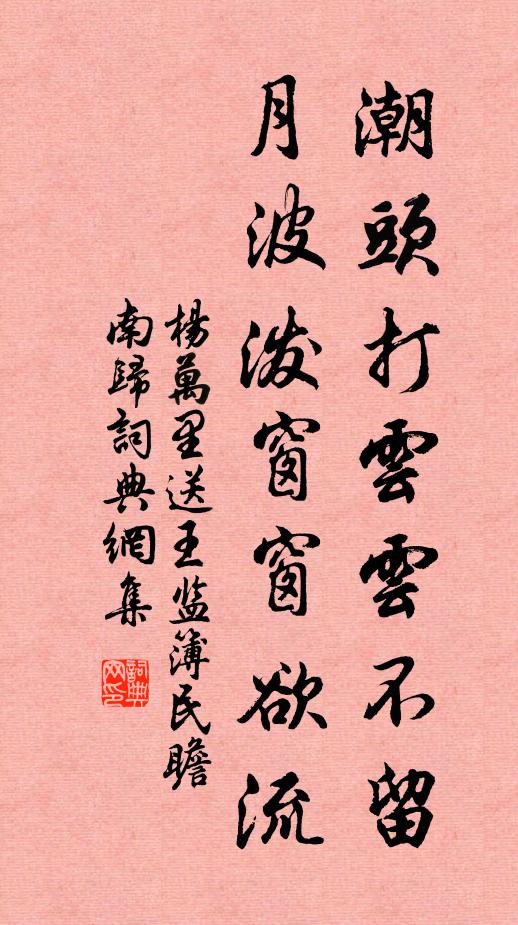 潮頭打雲雲不留
月波泼窗窗欲流
楊萬里送王监簿民瞻
南歸詞典網集
詞典
网印